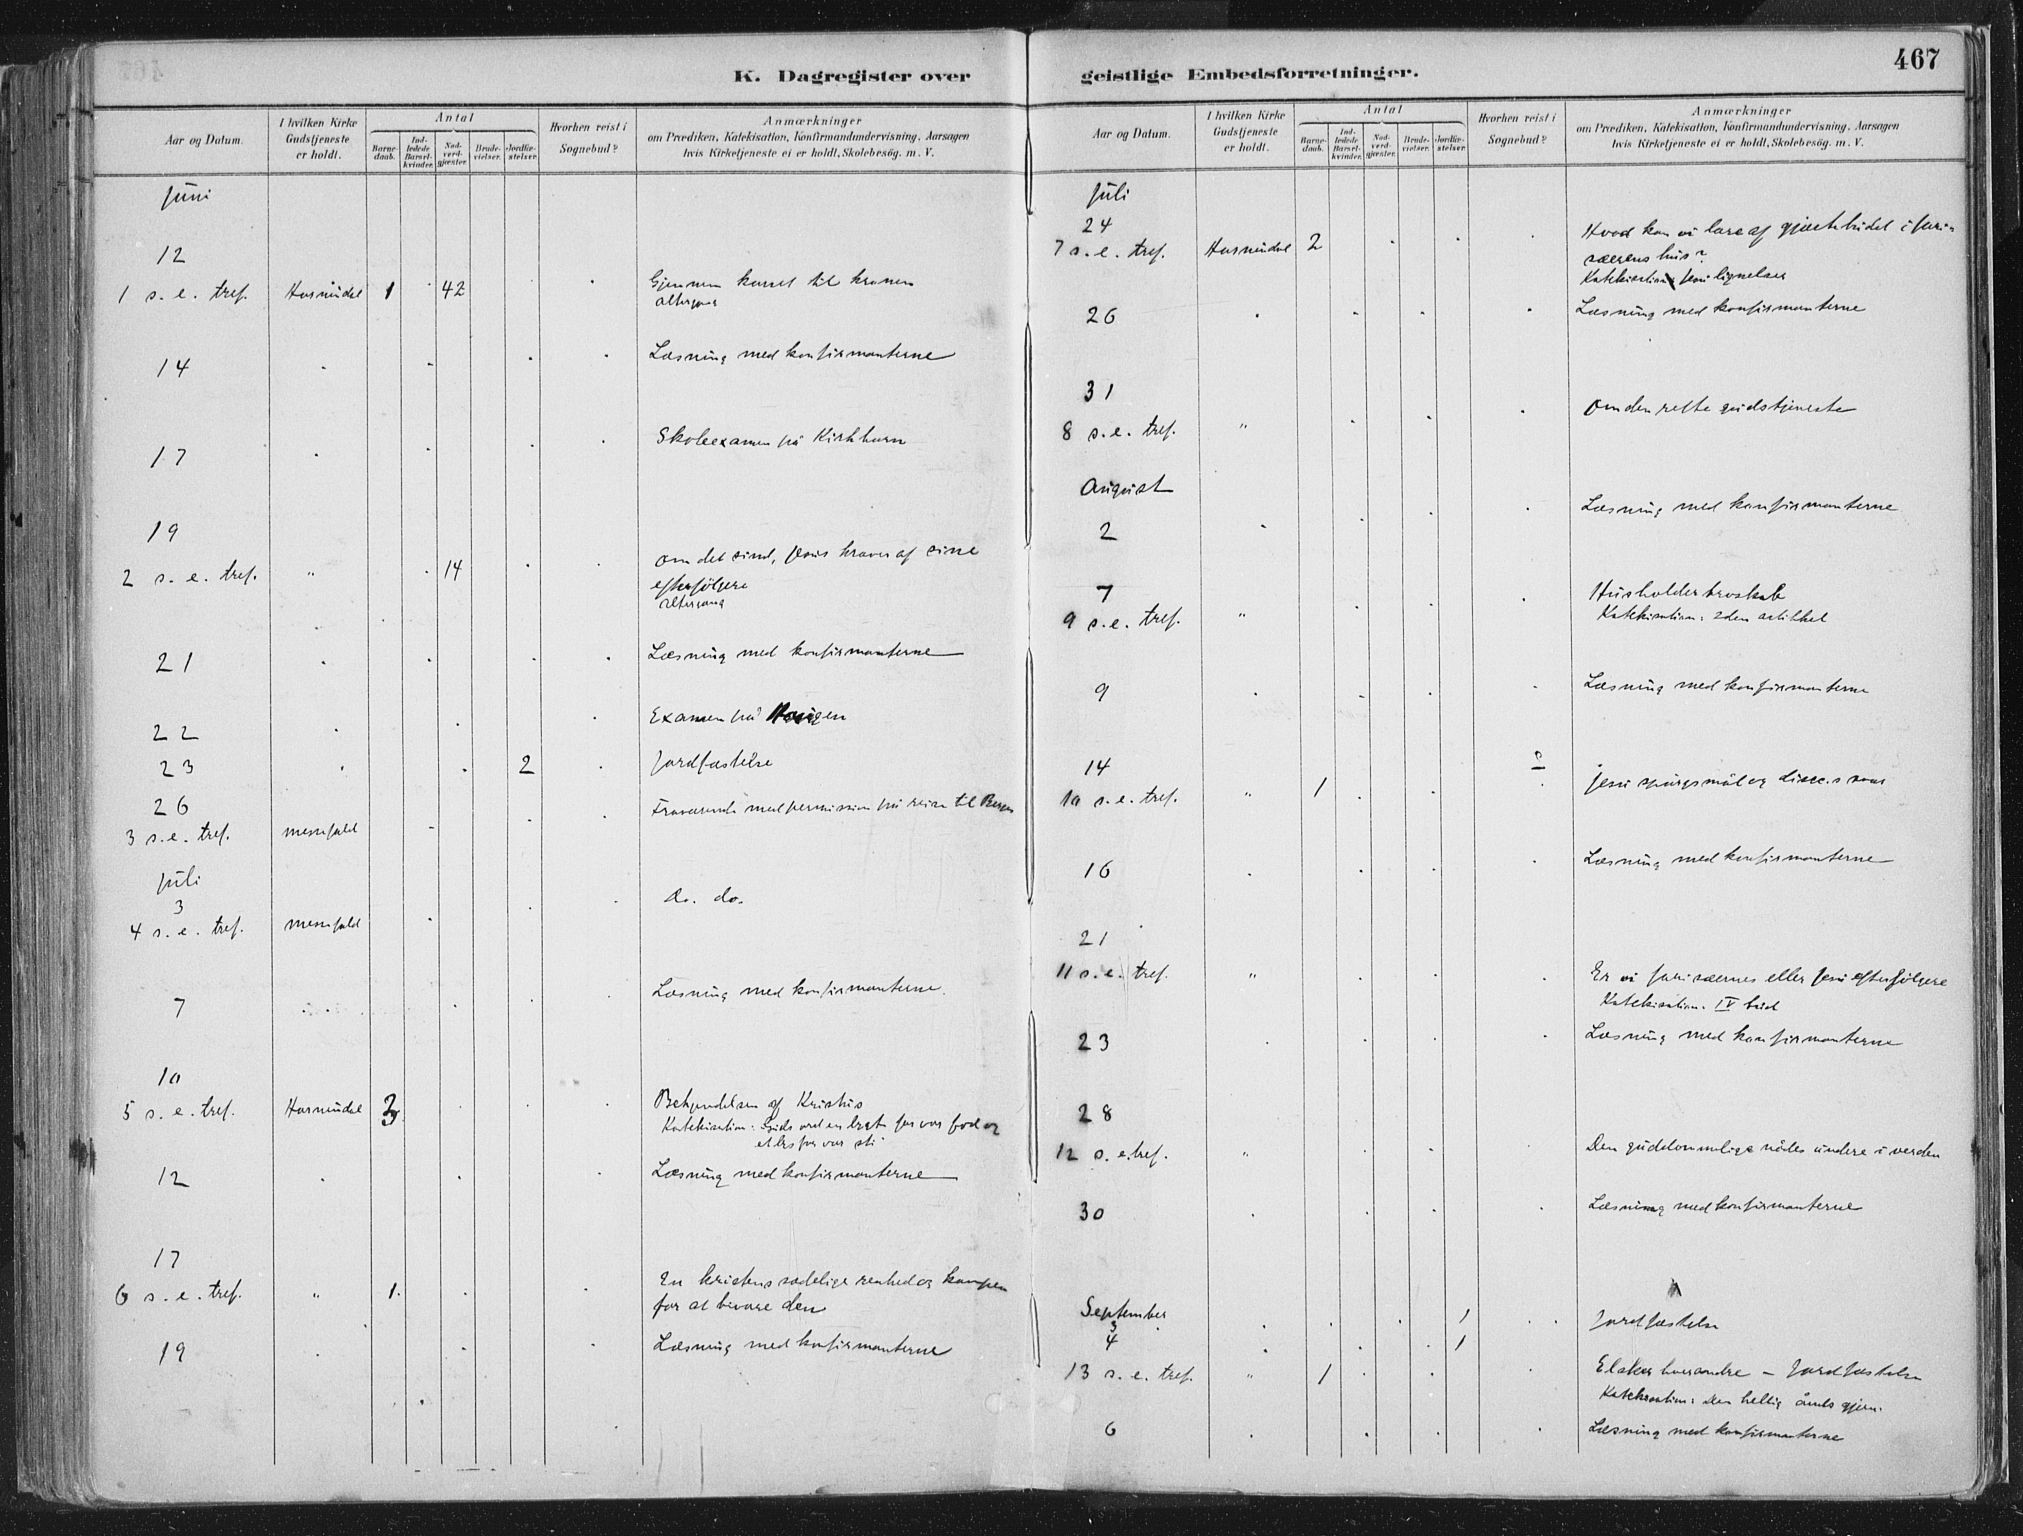 467
K. Dagregister over
geistlige Embedsforretninger.
Aar og Datum.
I hvilken Kirke
Gudstjeneste
er holdt.
Antal
Barne-
daab.
Ind-
ledede
Barsel-
kvinder.
Nad-
verd-
gjester.
Brude-
vielser.
Jordfæ-
stelser.
Hvorhen reist i
Sognebud?
Anmærkninger
om Prædiken, Katekisation, Konfirmandundervisning, Aarsagen
hvis Kirketjeneste ei er holdt, Skolebesøg. m. V.
Juni
12
1 s. e. tref. Hornindal 1 42 Gjennem korset til kronen
altergang
14 Læsning med konfirmanterne
17 Skoleexamen på Kirkhorn
19
2 s. e. tref. " 14 om det sind, Jesus kræver af sine
efterfölgere
altergang
21 Læsning med konfirmanterne
22 Examen på
23 2 Jordfæstelse
26 Fraværende med permission på reise til Bergen
3 s. e. tref. messefald
Juli
3
4 s. e. tref. messefald do. do.
7 Læsning med konfirmanterne.
10
5 s. e. tref. Hornindal 3 Bekjendelsen af Kristus
Katekisation: Guds ord en lygte for vor fod og
et lys for vor sti
12 Læsning med konfirmanterne
17
6 s. e. tref. " 1 En kristens sædelige renhed og kampen
for at bevare den
19 Læsning med konfirmanterne
Aar og Datum.
I hvilken Kirke
Gudstjeneste
er holdt.
Antal
Barne-
daab.
Ind-
ledede
Barsel-
kvinder.
Nad-
verd-
gjester.
Brude-
vielser.
Jordfæ-
stelser
Hvorhen reist i
Sognebud?
Anmærkninger
om Prædiken, Katekisation, Konfirmandundervisning, Aarsagen
hvis Kirketjeneste ei er holdt, Skolebesøg. m. V.
Juli
24
7 s. e. tref. Hornindal 2 Hvad kan vi lære af gjæstebudet i fari-
sæerens hus?
Katekisation: Jesu lignelser
26 Læsning med konfirmanterne
31
8 s. e. tref. " Om den rette gudstjeneste
August
2 Læsning med konfirmanterne
7
9 s. e. tref. " Husholdertroskab
Katekisation: 2den artikkel
9 Læsning med konfirmanterne
14
10 s. e. tref. " 1 Jesu spørgsmål og svar
16 Læsning med konfirmanterne
21
11 s. e. tref. " Er vi farisæernes eller Jesu efterfölgere
Katekisation. IV bud
23 Læsning med konfirmanterne
28
12 s. e. tref. " Den guddommelige nådes undere i verden
30 Læsning med konfirmanterne
September
3 1 Jordfæstelse
4 1
13 s. e. tref. " 1 Elsker hverandre – Jordfæstelse
Katekisation: Den hellig ånds gjern.
6 Læsning med konfirmanterne